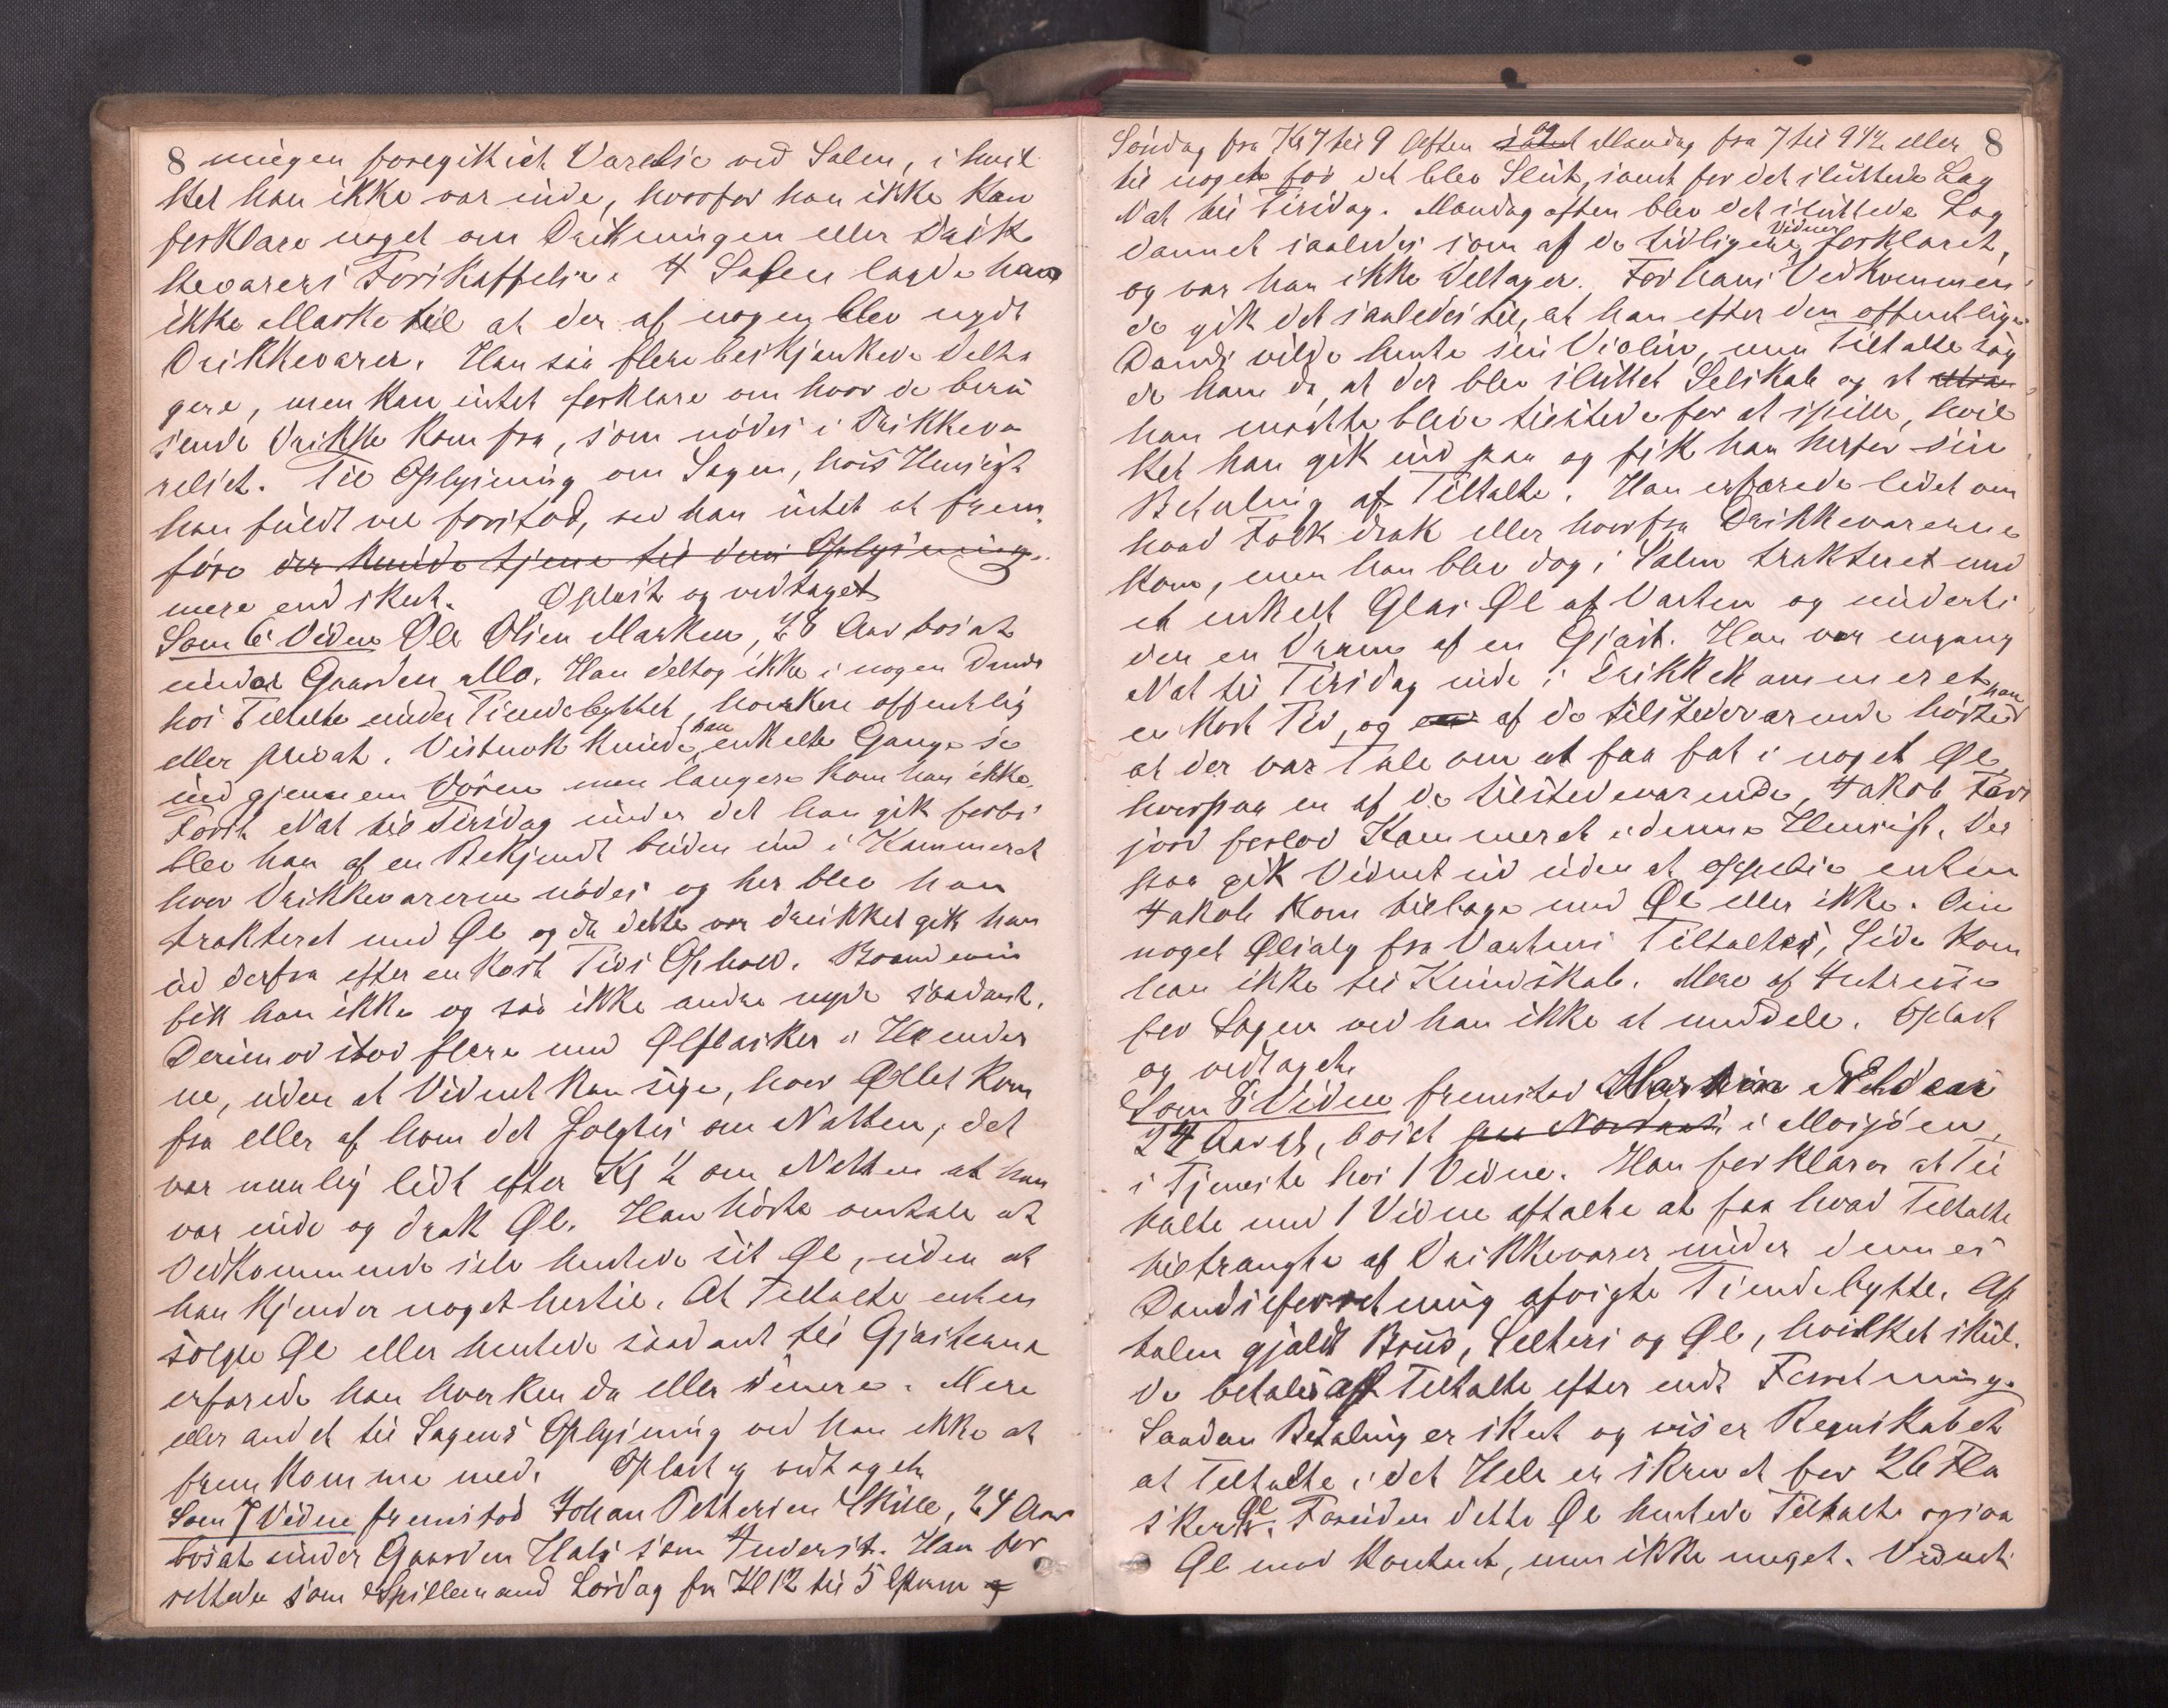 8 ningen foregik i et Værelse ved Salen, i hvil
ket han ikke var inde, hvorfor han ikke kan
forklare noget om Drikningen eller Drik
kevarers Forskaffelse. I Salen lagde han
ikke Mærke til at der af nogen blev nydt
Drikkevarer. Han saa flere beskjænkede Delta
gere, men kan intet forklare om hvor de beru
sende Drikke kom fra, som nødes i Drikkevæ
relset. Til Oplysning om Sagen, hvis Hensigt
han fuldt vel forstod, ved han intet at frem
føre der kunde tjene til dens Oplysning
mere end skeet. Oplæst og vedtaget
Som 6 Vidne Ole Olsen Marken, 28 Aar bosat
under Gaarden Mo. Han deltog ikke i nogen Dands
hos Tiltalte under Tiendebyttet, hverken offentlig
eller privat. Vistnok kunde han enkelte Gange se
ind gjennem Døren men længere kom han ikke.
Først Nat til Tirsdag under det han gik forbi
blev han af en Bekjendt buden ind i Kammeret
hvor Drikkevarerne nødes og her blev han
trakteret med Øl og da dette var drukket gik han
ud derfra efter en kort Tids Ophold. Brændevin
fik han ikke og saa ikke andre nyde saadant.
Derimod stod flere med Ølflasker i Hænder
ne, uden at Vidnet kan sige, hvor Øllet kom
fra eller af hvem det solgtes om Natten, det
var nemlig lidt efter Kl ½ om Natten at han
var inde og drak Øl. Han hørte omtale at
Vedkommende selv hentede sit Øl, uden at
han kjender noget hertil. At Tiltalte enten
solgte Øl eller hentede saadant til Gjæsterne
erfarede han hverken da eller senere. Mere
eller andet til Sagens Oplysning ved han ikke at
fremkomme med. Oplæst og vedtaget
Som 7 Vidne fremstod Johan Pettersen Skille, 24 Aar
bosat under Gaarden Hals som Inderst. Han for
rettede som Spillemand Lørdag fra Kl 12 til 5 Efterm og
Søndag fra Kl 7 til 9 Aften samt og Mandag fra 7 til 9½ eller 8
til noget før det blev Slut, samt for det sluttede Lag
Nat til Tirsdag. Mandag aften blev det sluttede Lag
dannet saaledes som af de tidligere Vidner forklaret,
og var han ikke Deltager. For hans Vedkommen
de gik det saaledes til, at han efter den offentlige
Dands vilde hente sin Violin, men Tiltalte sag
de ham da, at der blev sluttet Selskab og at
han maatte blive tilstede for at spille, hvil
ket han gik ind paa og fik han herfor sin
Betaling af Tiltalte. Han erfarede lidet om
hvad Folk drak eller hvorfra Drikkevarerne
kom, men han blev dog i Salen trakteret med
et enkelt Glas Øl af Værten og underti
den en Dram af en Gjæst. Han var engang
Nat til Tirsdag inde i Drikkekammeret
en kort Tid, og af de tilstedeværende hørte han
at der var Tale om at faa fat i noget Øl,
hvorpaa en af de tilstedeværende, Jakob
jord forlod Kammeret i denne Hensigt. Der
paa gik Vidnet ud uden at opleve enten
Jakob kom tilbage med Øl eller ikke. Om
noget Ølsalg fra Værtens Tiltaltes Side kom
han ikke til Kundskab. Mere af Interesse
for Sagen ved han ikke at meddele. Oplæst
og vedtaget
Som 8 Vidne fremstod
24 Aar gl, bosat i Mosjøen,
i Tjeneste hos 1 Vidne. Han forklarer at Til
talte med 1 Vidne aftalte at faa hvad Tiltalte
tiltrængte af Drikkevarer under dennes
Dandseforretning afvigte Tiendebytte. Af
talen gjaldt Brus, Selters og Øl, hvilket skul
de betales af Tiltalte efter endt Forretning.
Saadan Betaling er skeet og viser Regnskabet
at Tiltalte i det Hele er skrevet for 26 Fla
sker Øl. Foruden dette Øl hentede Tiltalte ogsaa
Øl mod Kontant, men ikke meget. Vidnet